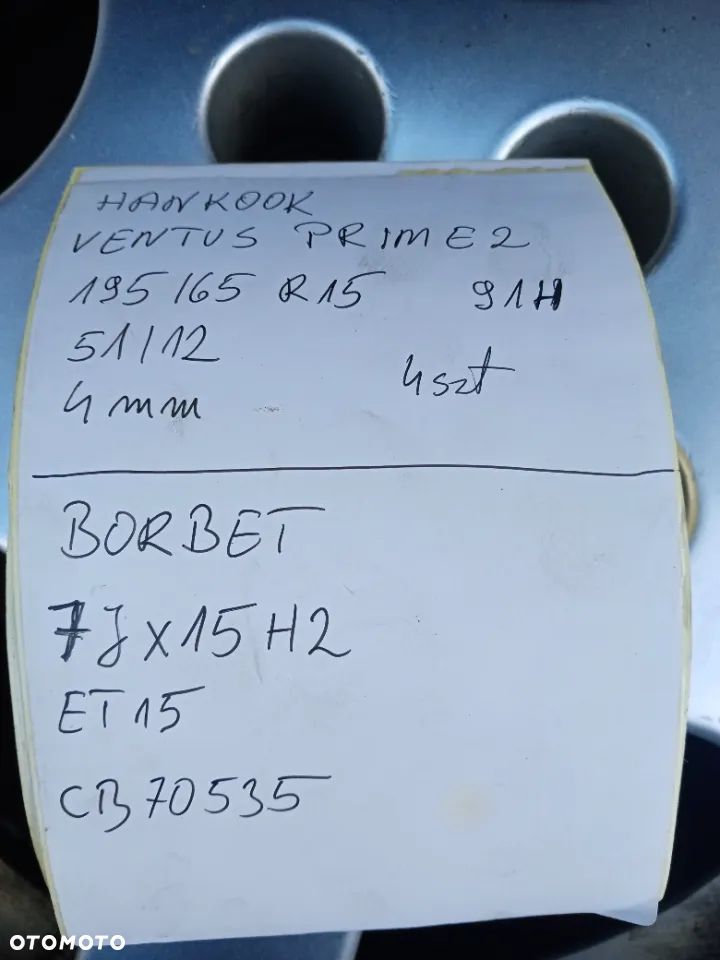 HANKOOK
VENTUS PRIME 2
195/65 R15 91H
51/12
4 mm 4szt
BORBET
7JX15H2
ET15
CB70535
OTOMOTO